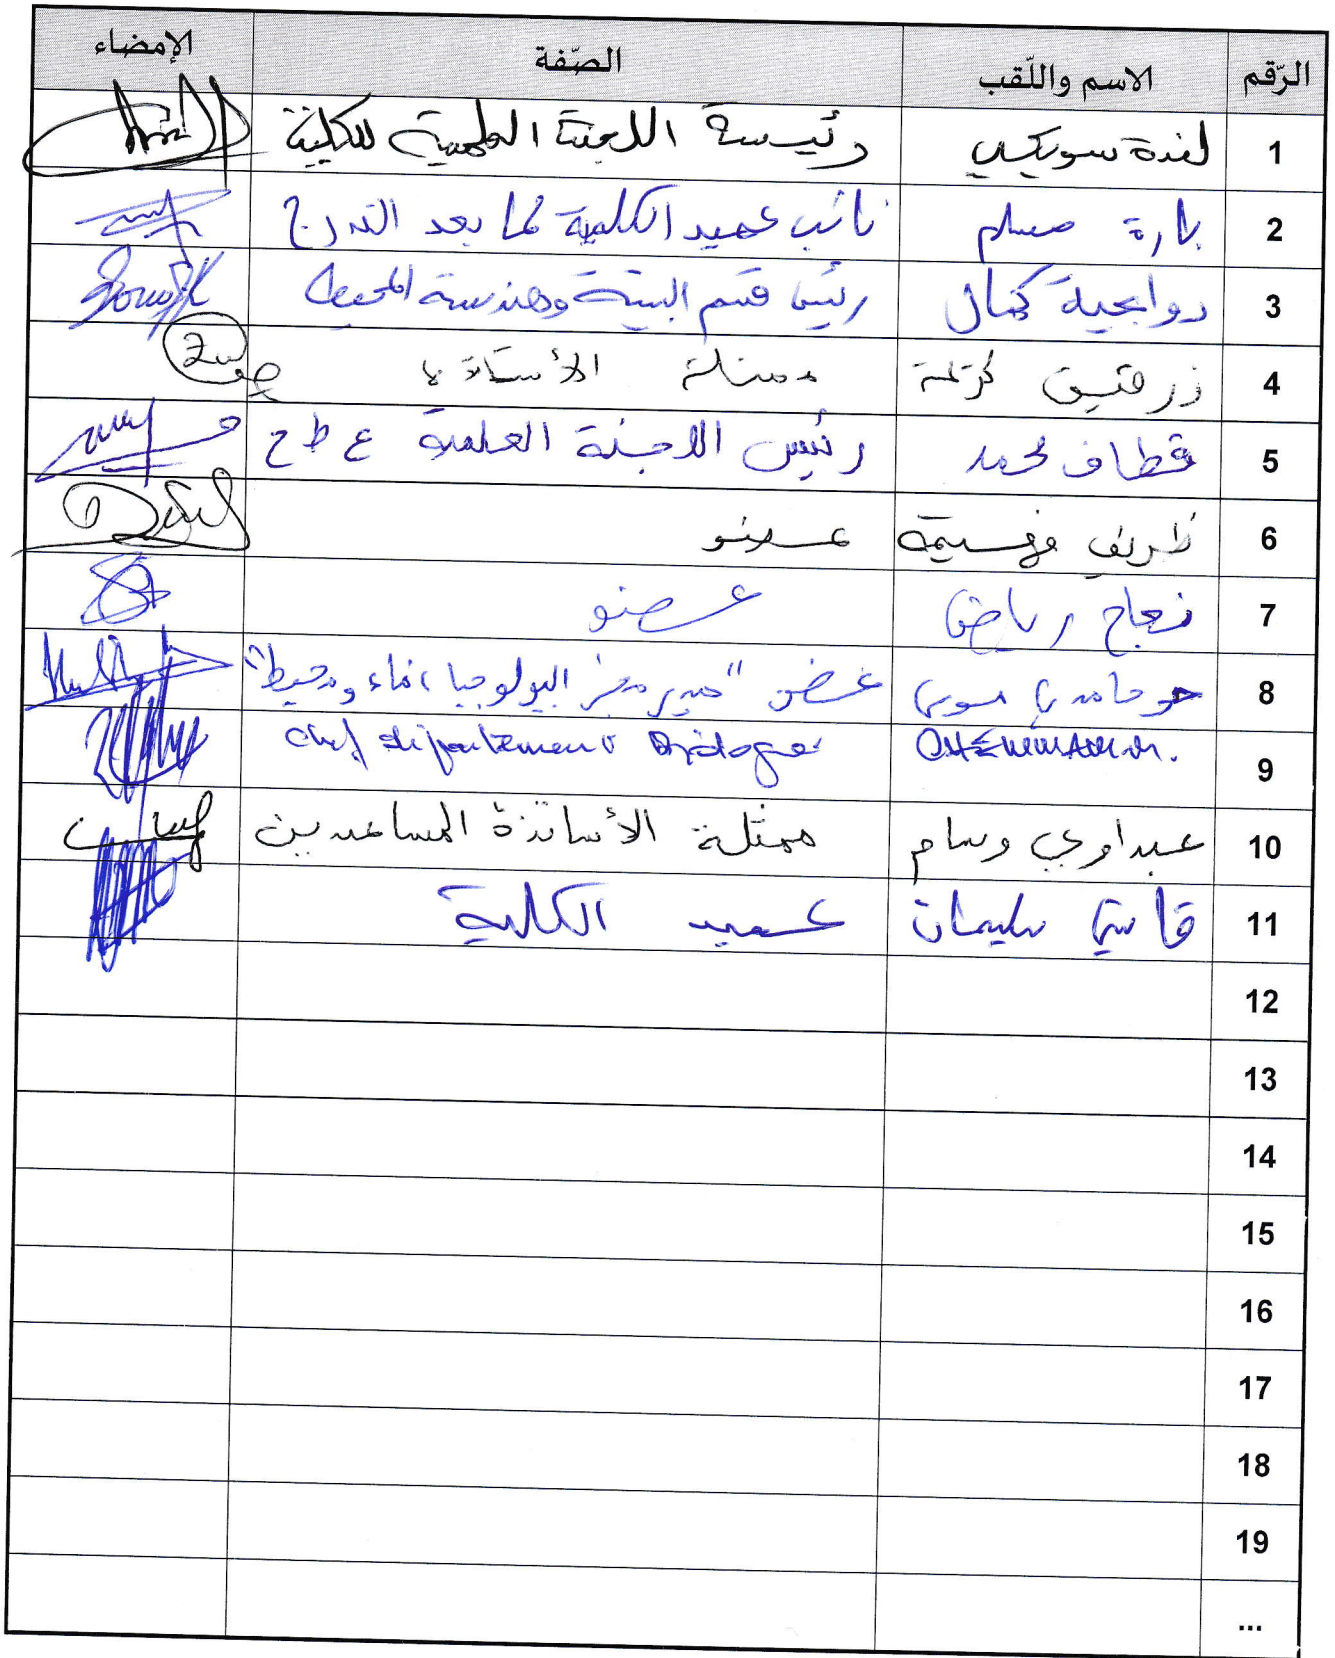 الرّقم الاسم واللّقب الصّفة الإمضاء
1 لندة سويكي رئيسة اللجنة العلمية للكلية
2 بارة مسلم نائب عميد الكلية لما بعد التدرج
3 روابحية كمال رئيس قسم البيئة وهندسة المحيط
4 زرقين ممثلة الأساتذة
5 قطاف محمد رئيس اللاجنة العلمية ع ط ح
6 ظريف وهيبة عضو
7 نعاج رياض عضو
8 حوحامديا موسى عضو "مدير مخبر البيولوجيا، ماء ومحيط"
9 Chef département Biologie
10 عبداوي وسام ممثلة الأساتذة المساعدين
11 قاسي سليمان عميد الكلية
12
13
14
15
16
17
18
19
...